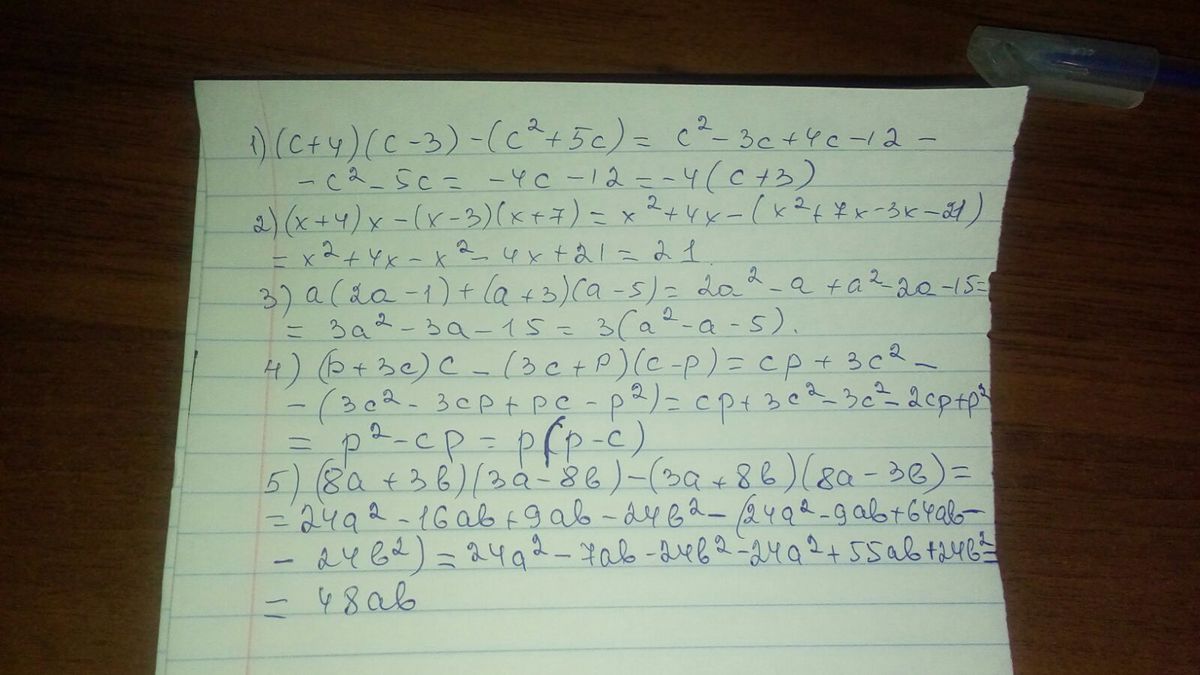 1) (c+4)(c-3)-(c²+5c) = c²-3c+4c-12-
-c²-5c = -4c-12 = -4(c+3)
2) (x+4)x-(x-3)(x+7) = x²+4x-(x²+7x-3x-21)
= x²+4x-x²-4x+21 = 21.
3) a(2a-1)+(a+3)(a-5) = 2a²-a+a²-2a-15=
= 3a²-3a-15 = 3(a²-a-5).
4) (p+3c)c-(3c+p)(c-p) = cp+3c²-
-(3c²-3cp+pc-p²) = cp+3c²-3c²-2cp+p²
= p²-cp = p(p-c)
5) (8a+3в)(3a-8в)-(3a+8в)(8a-3в)=
= 24a²-16aв+9aв-24в²-(24a²-9aв+64aв-
-24в²) = 24a²-7aв-24в²-24a²+55aв+24в²=
= 48aв